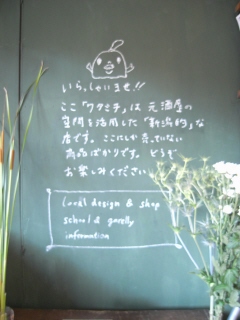 いらっしゃいませ!!
ここ「ワタミチ」は 元酒屋の
空間を活用した「新潟的」な
店です。ここにしか売っていない
商品ばかりです。どうぞ
お楽しみください。
local design & shop
school & garelly
information